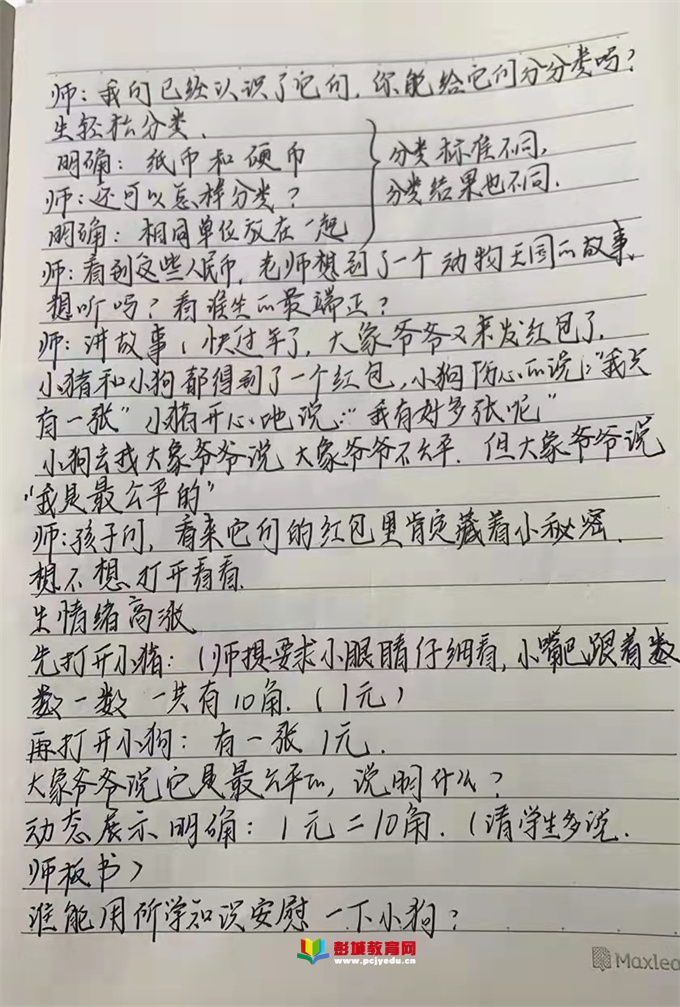 师：我们已经认识了它们，你能给它们分分类吗？
生轻松分类．
明确：纸币和硬币
师：还可以怎样分类？
明确：相同单位放在一起
分类标准不同，
分类结果也不同．
师：看到这些人民币，老师想到了一个动物王国的故事，
想听吗？看谁坐的最端正？
师：讲故事（快过年了，大象爷爷又来发红包了．
小猪和小狗都得到了一个红包，小狗伤心的说：“我只
有一张”小猪开心地说：“我有好多张呢”
小狗去找大象爷爷说 大象爷爷不公平．但大象爷爷说
“我是最公平的”
师：孩子们，看来它们的红包里肯定藏着小秘密．
想不想打开看看．
生情绪高涨
先打开小猪：（师提要求小眼睛仔细看，小嘴巴跟着数
数一数 一共有10角．（1元）
再打开小狗：有一张1元．
大象爷爷说它是最公平的，说明什么？
动态展示 明确：1元＝10角．（请学生多说．
师板书）
谁能用所学知识安慰一下小狗？
彭城教育网
www.pcjyedu.cn
Maxlea